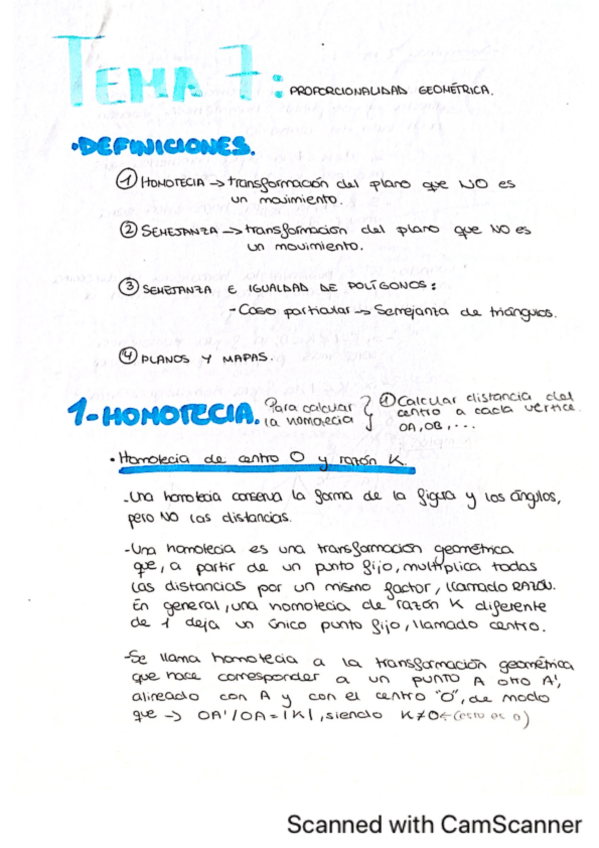 TEMA 7: PROPORCIONALIDAD GEOMÉTRICA.
·DEFINICIONES.
① HOMOTECIA → transformación del plano que NO es
un movimiento.
② SEMEJANZA → transformación del plano que NO es
un movimiento.
③ SEMEJANZA E IGUALDAD DE POLÍGONOS:
- Caso particular → Semejanza de triángulos.
④ PLANOS Y MAPAS.
1-HOMOTECIA. Para calcular la homotecia } ① Calcular distancia del
centro a cada vértice.
OA, OB, ...
· Homotecia de centro O y razón K.
-Una homotecia conserva la forma de la figura y los ángulos,
pero NO las distancias.
-Una homotecia es una transformación geométrica
que, a partir de un punto fijo, multiplica todas
las distancias por un mismo factor, llamado RAZÓN.
En general, una homotecia de razón K diferente
de 1 deja un único punto fijo, llamado centro.
-Se llama homotecia a la transformación geométrica
que hace corresponder a un punto A otro A',
alineado con A y con el centro "O", de modo
que → OA'/OA = |K|, siendo K≠0 ← (esto es 0)
Scanned with CamScanner